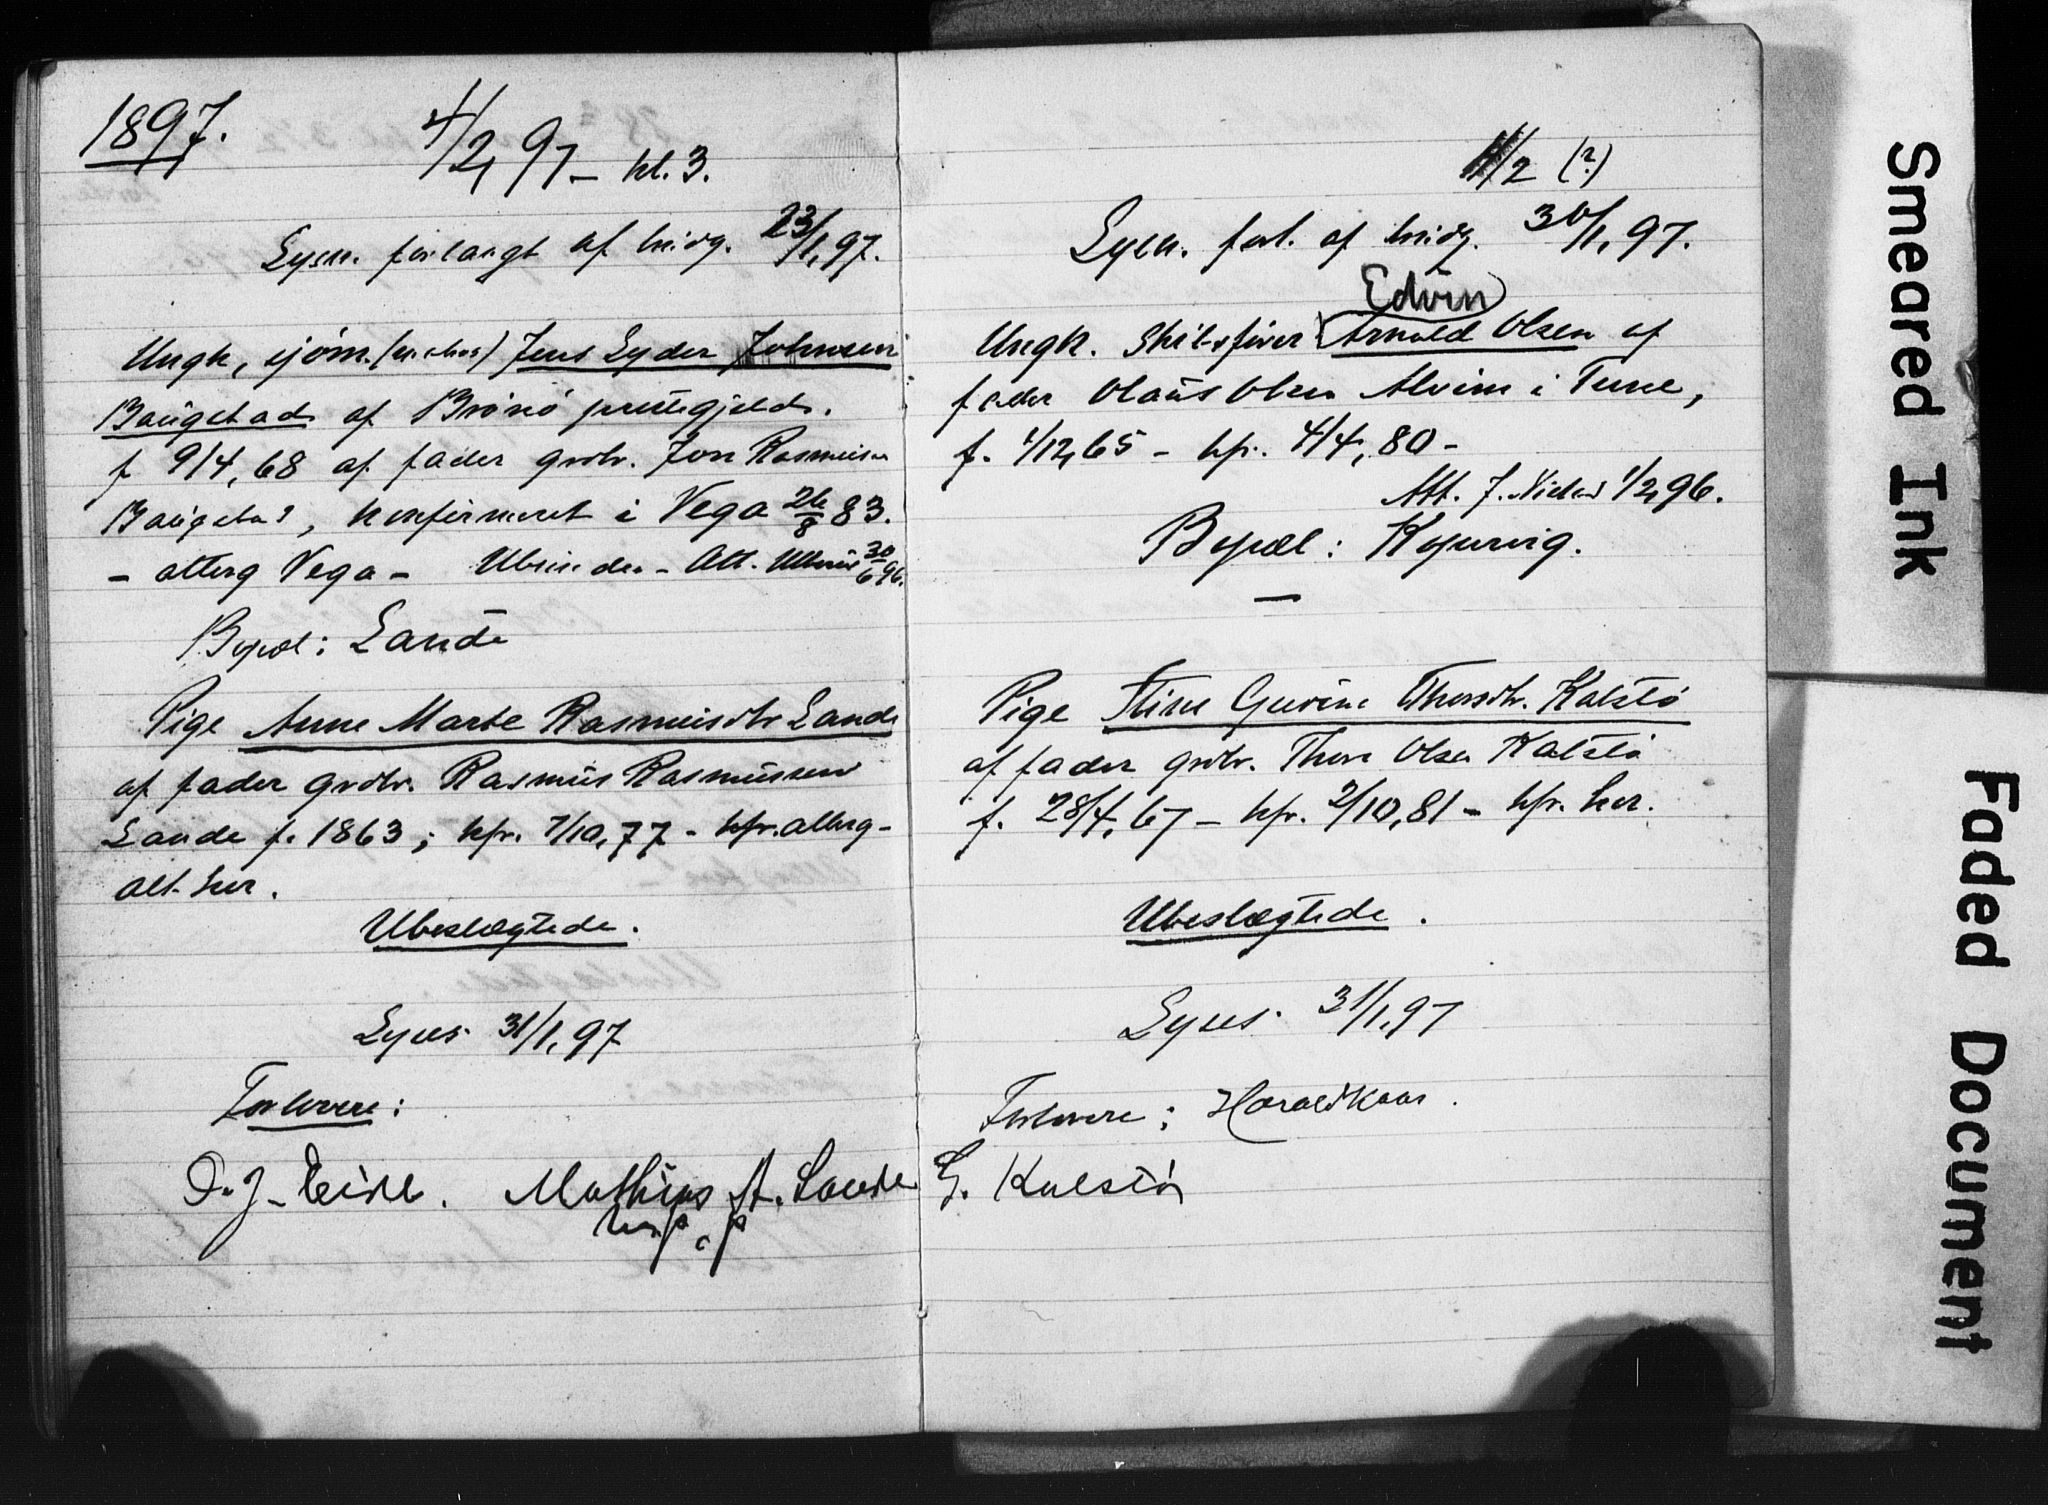 1897.
4/2, 97 – kl. 3.
Lysn. forlangt af brudg. 23/1, 97.
Ungk, sjøm. Jens Lyder Johnsen
Baugstad af Brønø prestegjeld.
f 9/4, 68 af fader grdbr. Jon Rasmusen
Baugstad, konfirmeret i Vega 26/8 83.
– attesg Vega – Att. 30/6 96.
Bopæl: Lande
Pige Anne Marte Rasmusdtr Lande
af fader grdbr. Rasmus Rasmussen
Lande f. 1863; kfr. 7/10, 77 – kfr.
alt her.
Ubeslægtede.
Lyses 31/1, 97
Forlovere:
O. J. Eide. Mathias A. Lande
4/2 (?)
Lysn. forl. af brudg. 30/1, 97.
Edvin
Ungk. Arnold Olsen af
fader Olaus Olsen Alvim i Tune,
f. 1/12, 65 – kfr. 4/4, 80 –
Att. 1/2, 96.
Bopæl: Kopervig.
—
Pige Stine Gurine Thorsdtr. Kalstø
af fader grdbr. Thore Olsen Kalstø
f. 28/4, 67 – kfr. 2/10, 81 – kfr. her.
Ubeslægtede.
Lyses 31/1, 97
Forlovere: Harald Kaar.
G. Kalstø
Smeared Ink
Faded Document